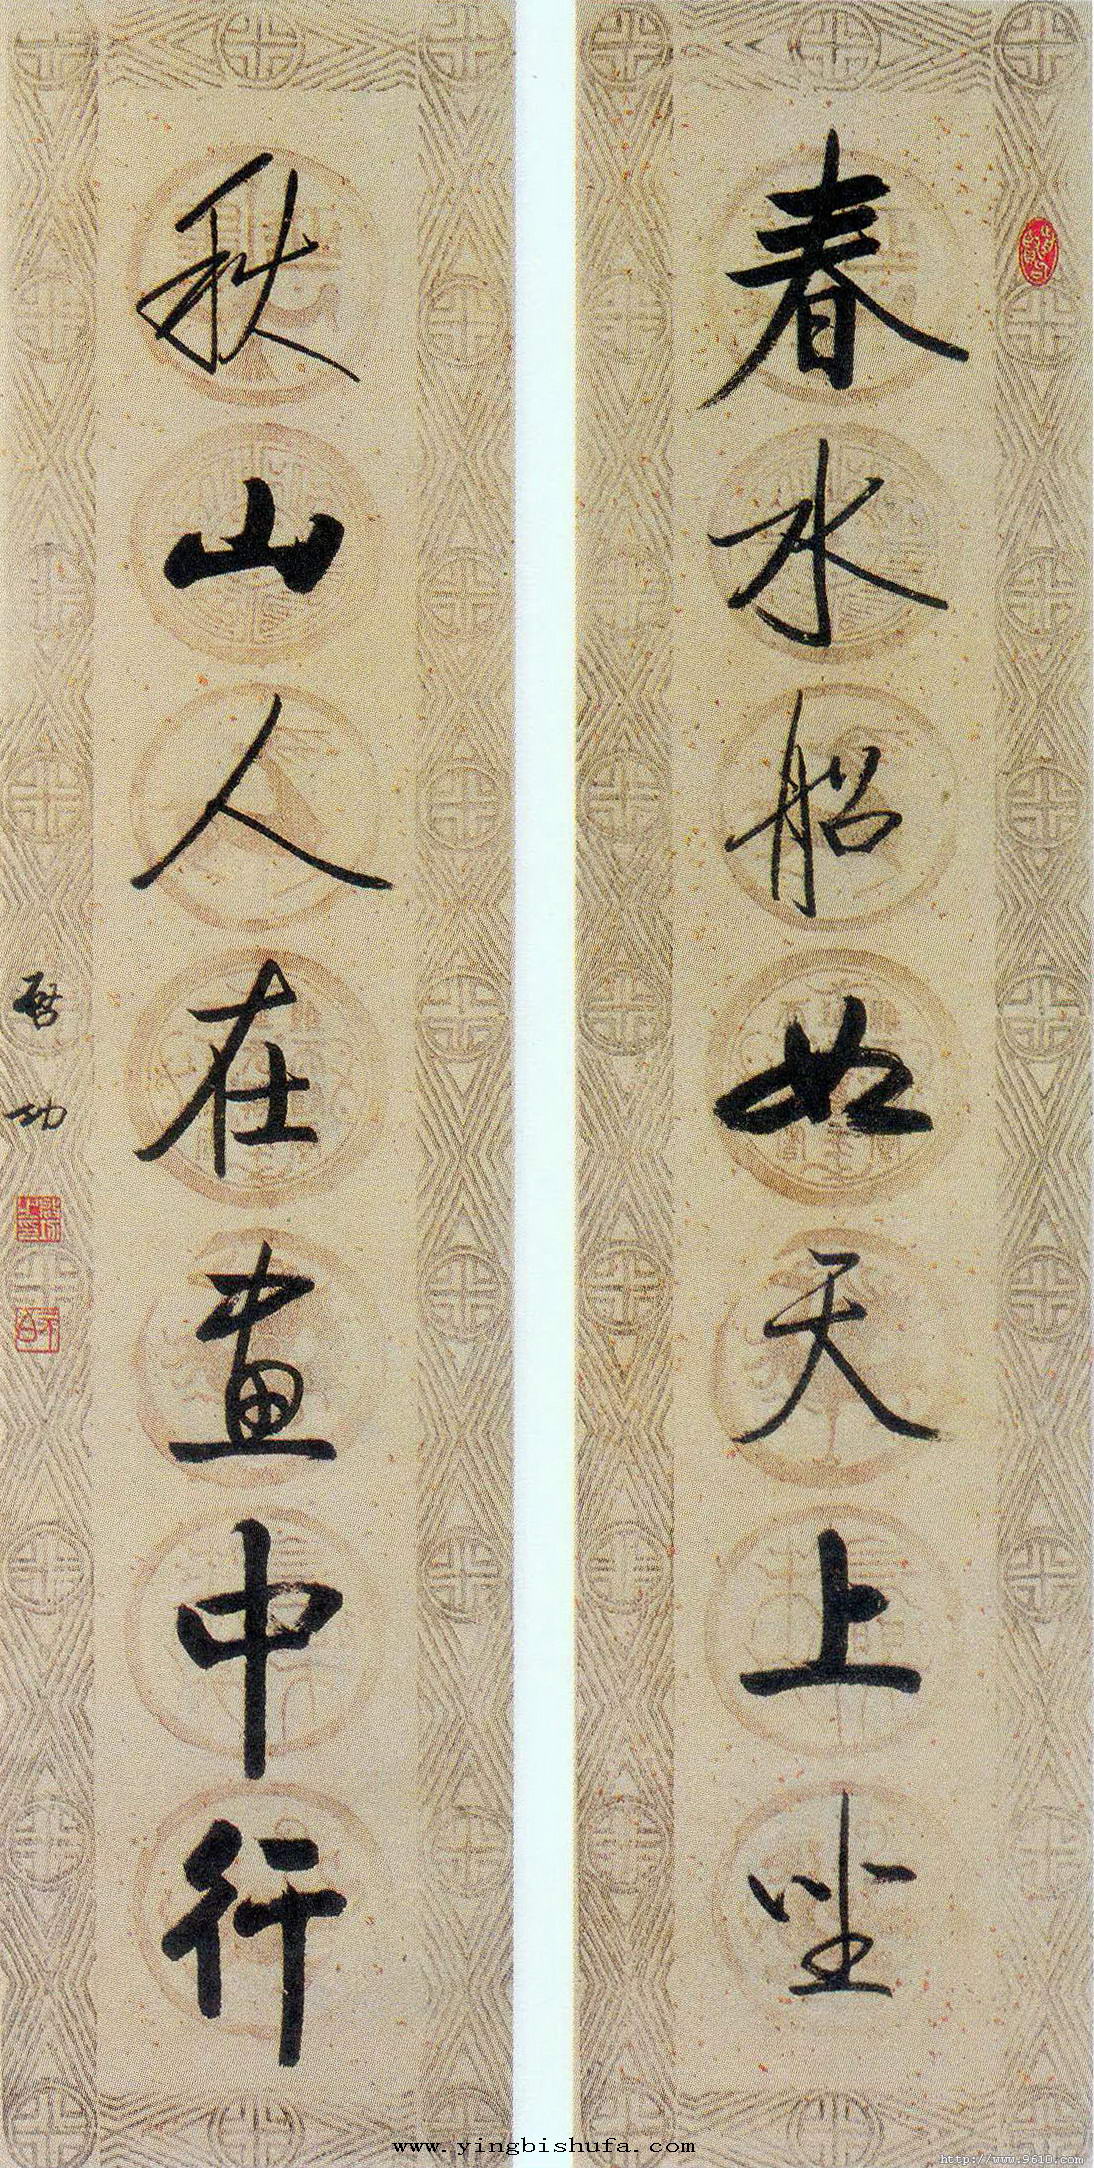 春水船如天上坐
秋山人在画中行
启功
www.yingbishufa.com
http://www.9610.com